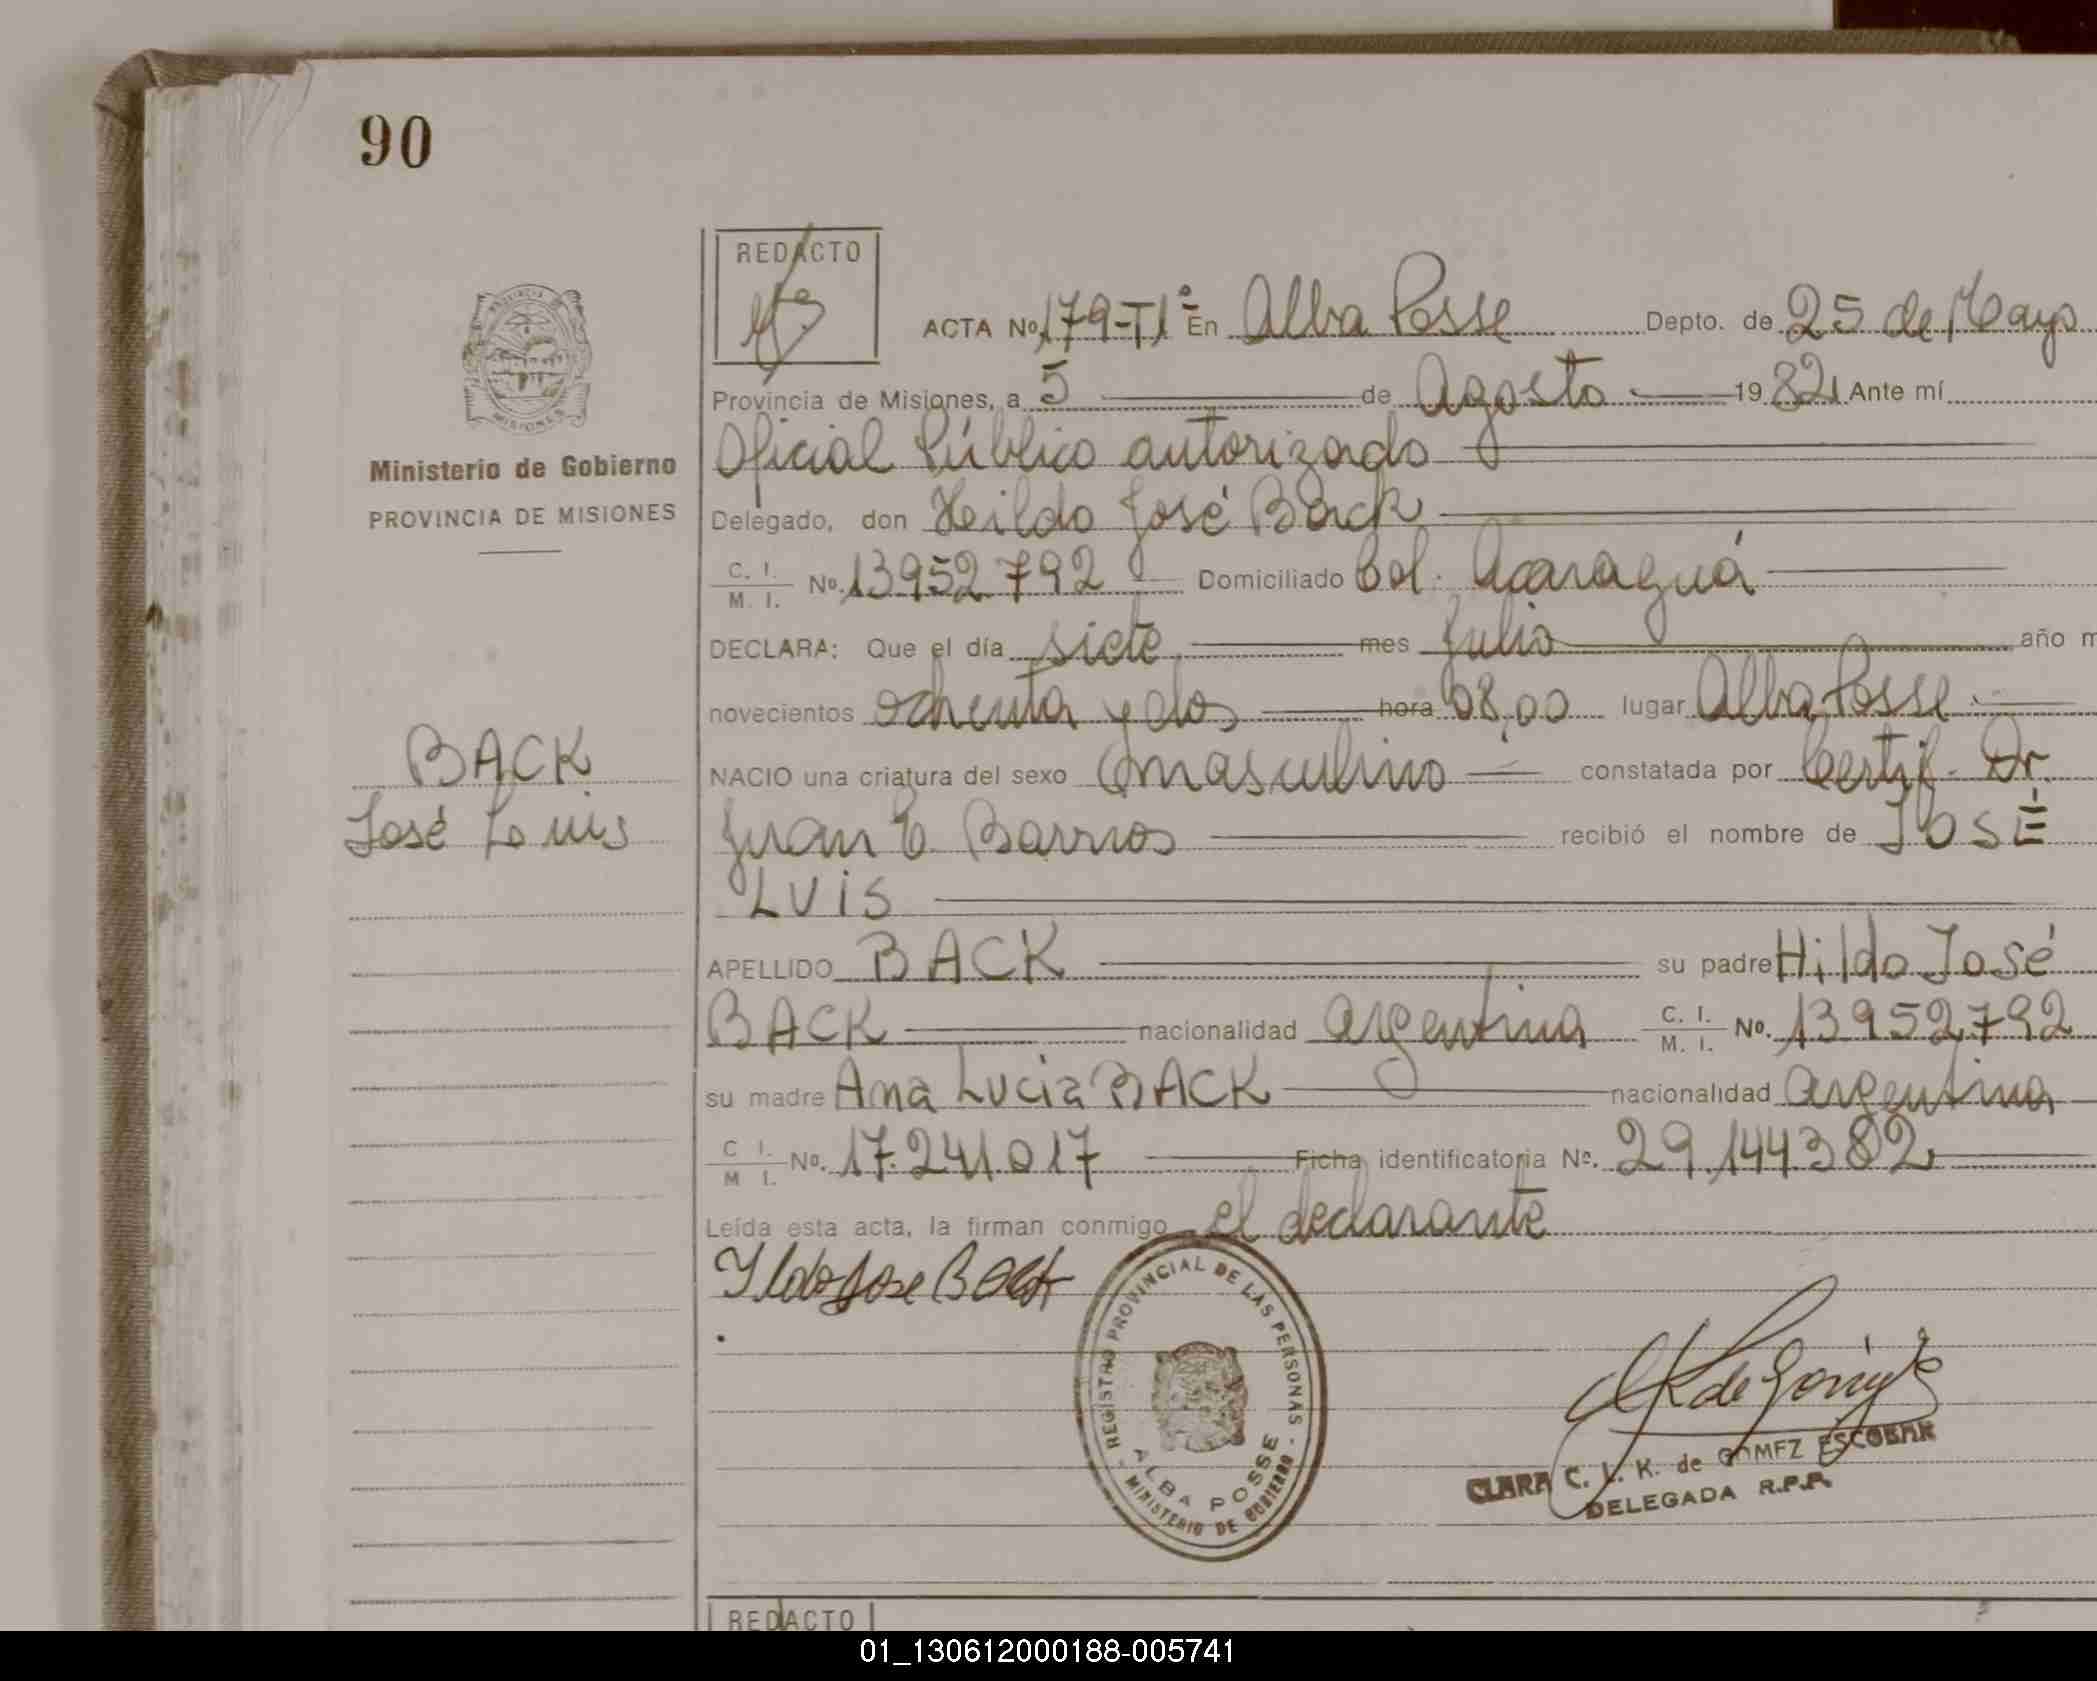 90
REDACTO
ACTA No. 179-T1º En Alba Posse Depto. de 25 de Mayo
Provincia de Misiones, a 5 de Agosto 1982 Ante mí
Oficial Público autorizado
Ministerio de Gobierno
PROVINCIA DE MISIONES
Delegado, don Heildo José Back
C. I.
M. I. No. 13952792 Domiciliado Col. Acaraguá
DECLARA: Que el día siete mes Julio año m
novecientos ochenta y dos hora 08,00 lugar Alba Posse
BACK
José Luis
NACIO una criatura del sexo masculino constatada por Certif. Dr.
Juan E. Barrios recibió el nombre de JOSÉ
LUIS
APELLIDO BACK su padre Hildo José
BACK nacionalidad argentina C. I. M. I. No. 13952792
su madre Ana Lucia BACK nacionalidad argentina
C I. M I. No. 17.241.017 Ficha identificatoria Nº. 29.144.382
Leída esta acta, la firman conmigo el declarante
Ildo Jose Back
REGISTRO PROVINCIAL DE LAS PERSONAS - MINISTERIO DE GOBIERNO -
ALBA POSSE
CLARA C. L. K. de GOMEZ ESCOBAR
DELEGADA R.P.P.
REDACTO
01_130612000188-005741